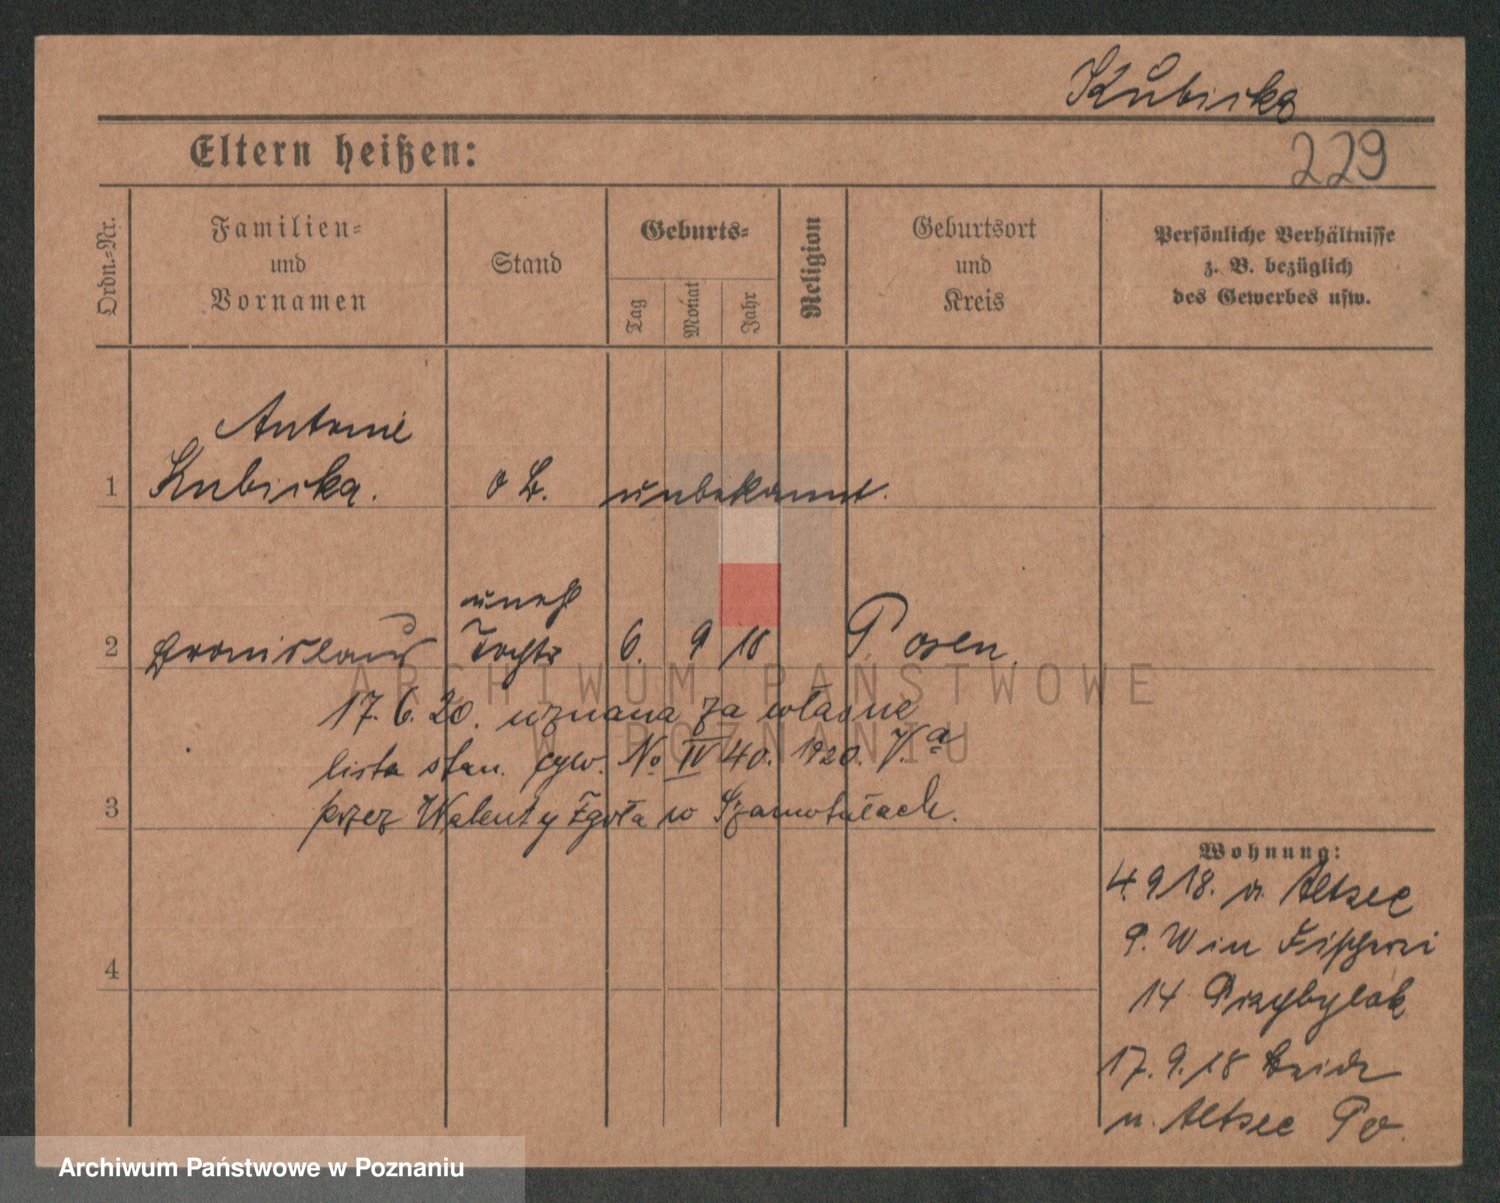 Kubicka
229
Eltern heißen:
Ordn.-Nr.
Familien-
und
Vornamen
Stand
Geburts-
Tag
Monat
Jahr
Religion
Geburtsort
und
Kreis
Persönliche Verhältnisse
z. B. bezüglich
des Gewerbes usw.
Antonie
1 Kubicka. o B. unbekannt.
unehl
2 Bronislawa Tochter 6. 9 18 Posen.
17. 6. 20. uznana za własne
lista stan. cyw. No IV 40. 1920.
3 przez Walenty Zgoła w Szamotułach.
4
Wohnung:
4. 9 18. v. Altsee
P. W in Fischerei
14 Przybylak
17. 9. 18 Beide
n. Altsee Po.
ARCHIWUM PAŃSTWOWE
W POZNANIU
Archiwum Państwowe w Poznaniu